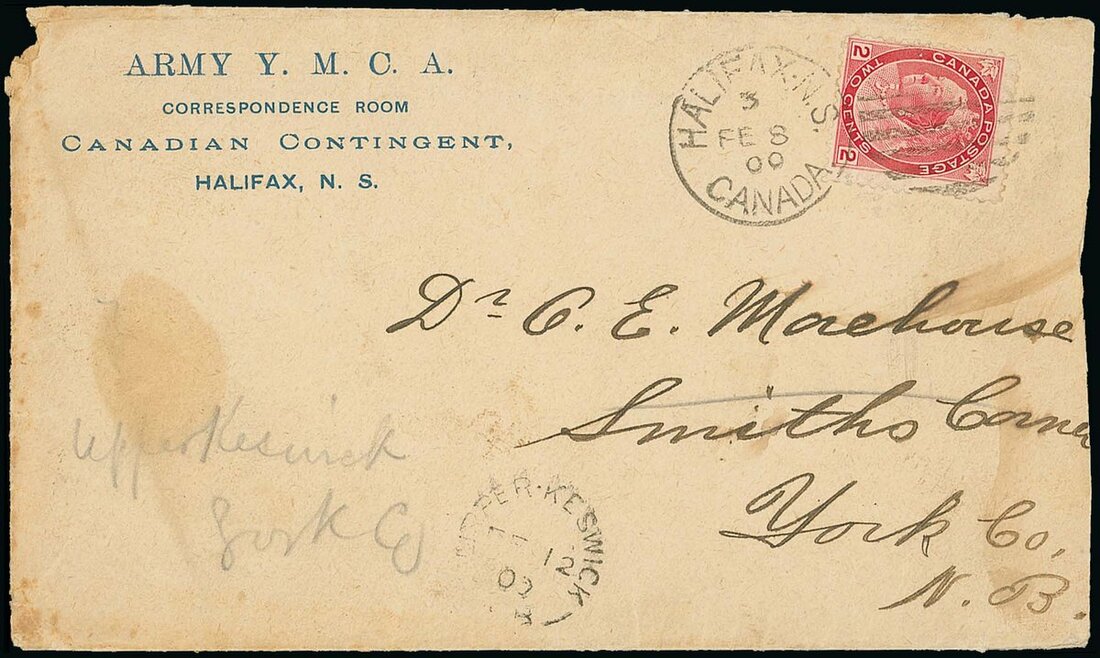 ARMY Y. M. C. A.
CORRESPONDENCE ROOM
CANADIAN CONTINGENT,
HALIFAX, N. S.
HALIFAX. N.S.
3
FE 8
00
CANADA
CANADA POSTAGE
2 TWO CENTS 2
Dr. C. E. Morehouse
Smiths Corner
York Co,
N. B.
Upper Keswick
York Co
UPPER-KESWICK
12
00